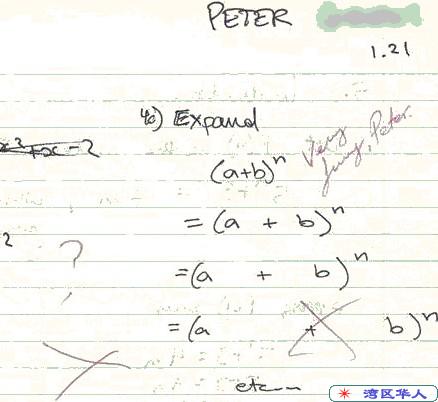 PETER
1.21
4c) Expand
x² + x - 2
Very
funny, Peter.
(a+b)ⁿ
= (a + b)ⁿ
2
?
= (a + b)ⁿ
= (a + b)ⁿ
etc...
湾区华人